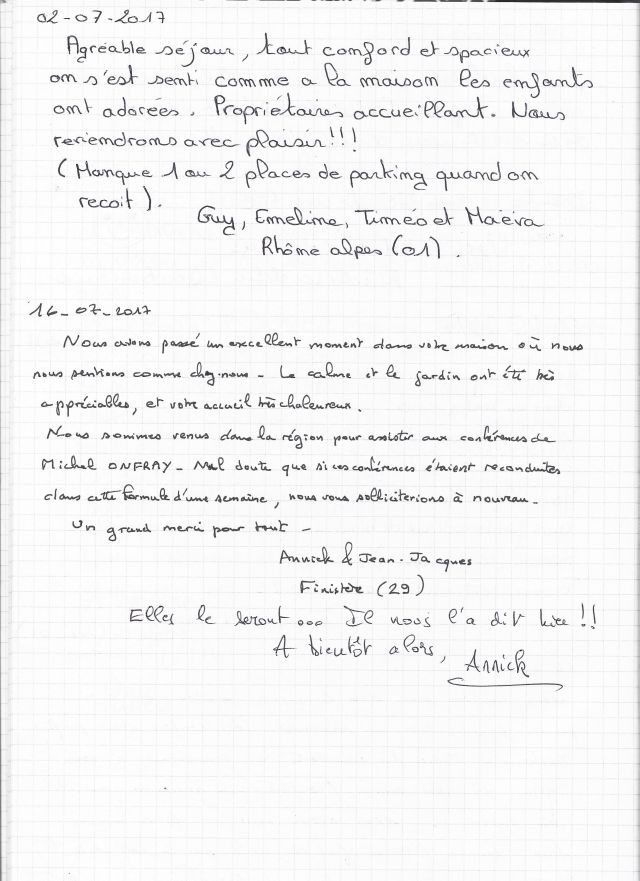 02-07-2017
Agréable séjour, tout comford et spacieux
on s'est senti comme a la maison les enfants
ont adorées. Propriétaires accueillant. Nous
reviendrons avec plaisir!!!
(Manque 1 ou 2 places de parking quand on
recoit).
Guy, Emeline, Timéo et Maëva
Rhône alpes (01).
16-07-2017
Nous avons passé un excellent moment dans votre maison où nous
nous sentions comme chez-nous - Le calme et le jardin ont été très
appréciables, et votre accueil très chaleureux.
Nous sommes venus dans la région pour assister aux conférences de
Michel ONFRAY - Nul doute que si ces conférences étaient reconduites
dans cette formule d'une semaine, nous vous solliciterions à nouveau -
Un grand merci pour tout -
Annick & Jean-Jacques
Finistère (29)
Elles le seront ... Il nous l'a dit hier !!
A bientôt alors, Annick